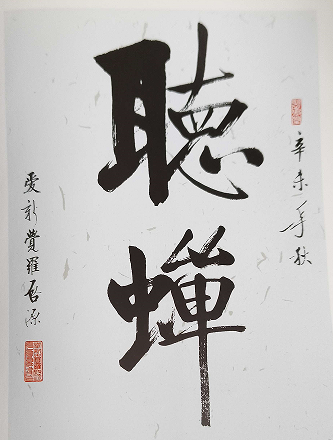 辛未年秋
聽蟬
愛新覺羅啟源